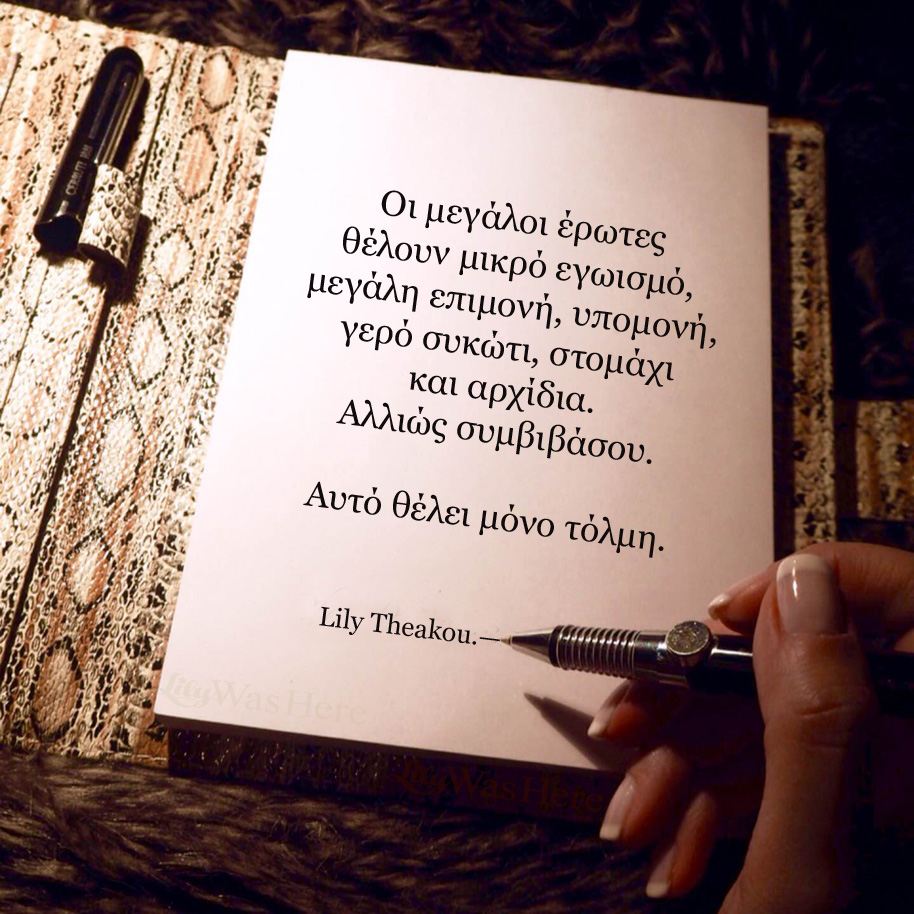 Οι μεγάλοι έρωτες
θέλουν μικρό εγωισμό,
μεγάλη επιμονή, υπομονή,
γερό συκώτι, στομάχι
και αρχίδια.
Αλλιώς συμβιβάσου.
Αυτό θέλει μόνο τόλμη.
Lily Theakou.—
LilyWasHere
LilyWasHere